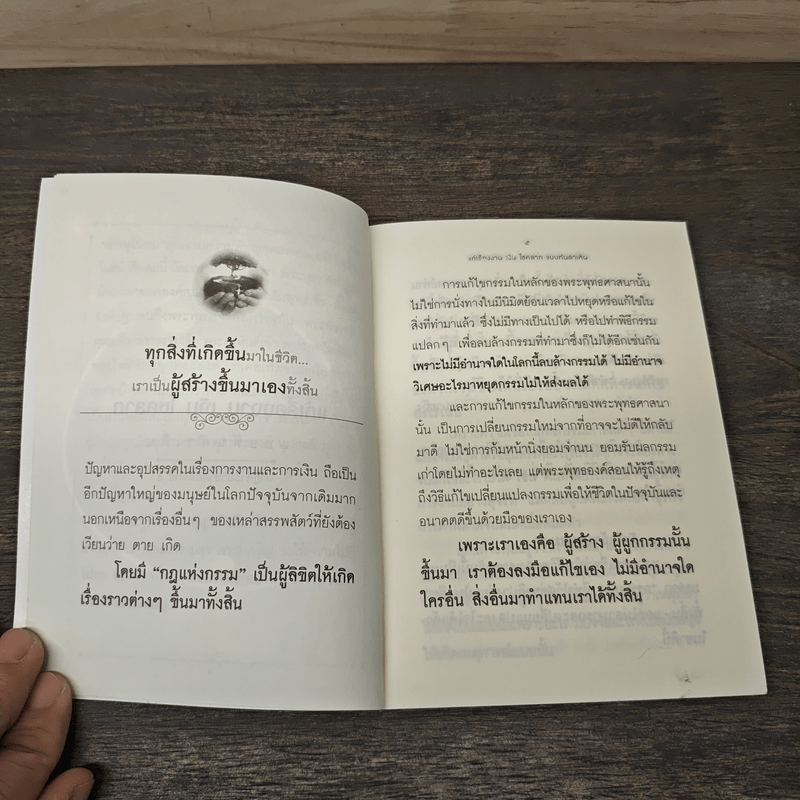 ทุกสิ่งที่เกิดขึ้นมาในชีวิต...
เราเป็นผู้สร้างขึ้นมาเองทั้งสิ้น
ปัญหาและอุปสรรคในเรื่องการงานและการเงิน ถือเป็น
อีกปัญหาใหญ่ของมนุษย์ในโลกปัจจุบันจากเดิมมาก
นอกเหนือจากเรื่องอื่นๆ ของเหล่าสรรพสัตว์ที่ยังต้อง
เวียนว่าย ตาย เกิด
โดยมี “กฎแห่งกรรม” เป็นผู้ลิขิตให้เกิด
เรื่องราวต่างๆ ขึ้นมาทั้งสิ้น
การแก้ไขกรรมในหลักของพระพุทธศาสนานั้น
ไม่ใช่การนั่งทางในมีนิมิตย้อนเวลาไปหยุดหรือแก้ไขใน
สิ่งที่ทำมาแล้ว ซึ่งไม่มีทางเป็นไปได้ หรือไปทำพิธีกรรม
แปลกๆ เพื่อลบล้างกรรมที่ทำมาซึ่งก็ไม่ได้อีกเช่นกัน
เพราะไม่มีอำนาจใดในโลกนี้ลบล้างกรรมได้ ไม่มีอำนาจ
วิเศษอะไรมาหยุดกรรมไม่ให้ส่งผลได้
และการแก้ไขกรรมในหลักของพระพุทธศาสนา
นั้น เป็นการเปลี่ยนกรรมใหม่จากที่อาจจะไม่ดีให้กลับ
มาดี ไม่ใช่การก้มหน้านิ่งยอมจำนน ยอมรับผลกรรม
เก่าโดยไม่ทำอะไรเลย แต่พระพุทธองค์สอนให้รู้ถึงเหตุ
ถึงวิธีแก้ไขเปลี่ยนแปลงกรรมเพื่อให้ชีวิตในปัจจุบันและ
อนาคตดีขึ้นด้วยมือของเราเอง
เพราะเราเองคือ ผู้สร้าง ผู้ผูกกรรมนั้น
ขึ้นมา เราต้องลงมือแก้ไขเอง ไม่มีอำนาจใด
ใครอื่น สิ่งอื่นมาทำแทนเราได้ทั้งสิ้น